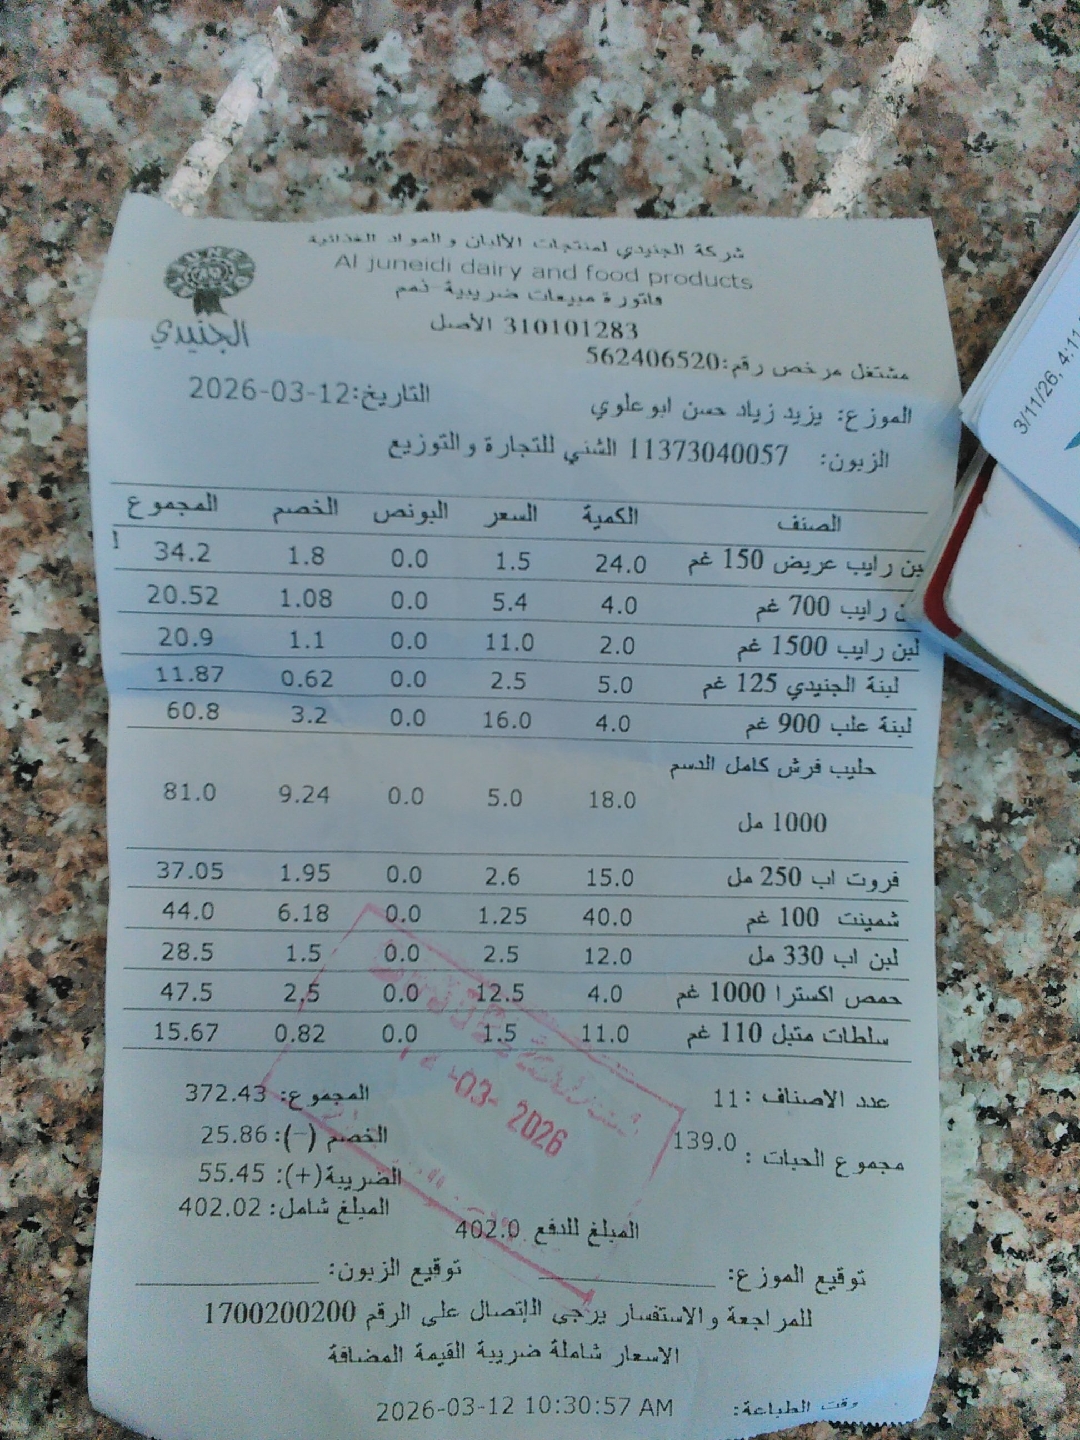 شركة الجنيدي لمنتجات الألبان والمواد الغذائية
Al juneidi dairy and food products
فاتورة مبيعات ضريبية-ذمم
310101283 الأصل
الجنيدي
مشتغل مرخص رقم:562406520
الموزع: يزيد زياد حسن ابوعلوي التاريخ:2026-03-12
الزبون: 11373040057 الشني للتجارة والتوزيع
الصنف الكمية السعر البونص الخصم المجموع
بن رايب عريض 150 غم 24.0 1.5 0.0 1.8 34.2
ن رايب 700 غم 4.0 5.4 0.0 1.08 20.52
لبن رايب 1500 غم 2.0 11.0 0.0 1.1 20.9
لبنة الجنيدي 125 غم 5.0 2.5 0.0 0.62 11.87
لبنة علب 900 غم 4.0 16.0 0.0 3.2 60.8
حليب فرش كامل الدسم
1000 مل 18.0 5.0 0.0 9.24 81.0
فروت اب 250 مل 15.0 2.6 0.0 1.95 37.05
شمينت 100 غم 40.0 1.25 0.0 6.18 44.0
لبن اب 330 مل 12.0 2.5 0.0 1.5 28.5
حمص اكسترا 1000 غم 4.0 12.5 0.0 2.5 47.5
سلطات متبل 110 غم 11.0 1.5 0.0 0.82 15.67
عدد الاصناف : 11 المجموع: 372.43
مجموع الحبات : 139.0 الخصم (-): 25.86
الضريبة(+): 55.45
المبلغ شامل: 402.02
المبلغ للدفع 402.0
-03- 2026
توقيع الموزع: توقيع الزبون:
للمراجعة والاستفسار يرجى الإتصال على الرقم 1700200200
الاسعار شاملة ضريبة القيمة المضافة
وقت الطباعة: 2026-03-12 10:30:57 AM
3/11/26, 4:11